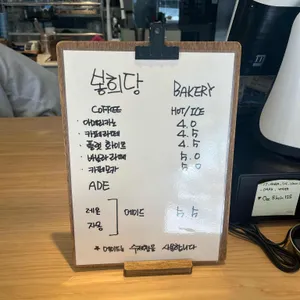 봉희당 BAKERY
COFFEE HOT/ICE
· 아메리카노 4.0
· 카페라떼 4.5
· 플랫 화이트 4.5
· 바닐라 라떼 5.0
· 카페모카 5.0
ADE
레몬
자몽 ] 에이드 5.5
* 에이드는 수제청을 사용합니다